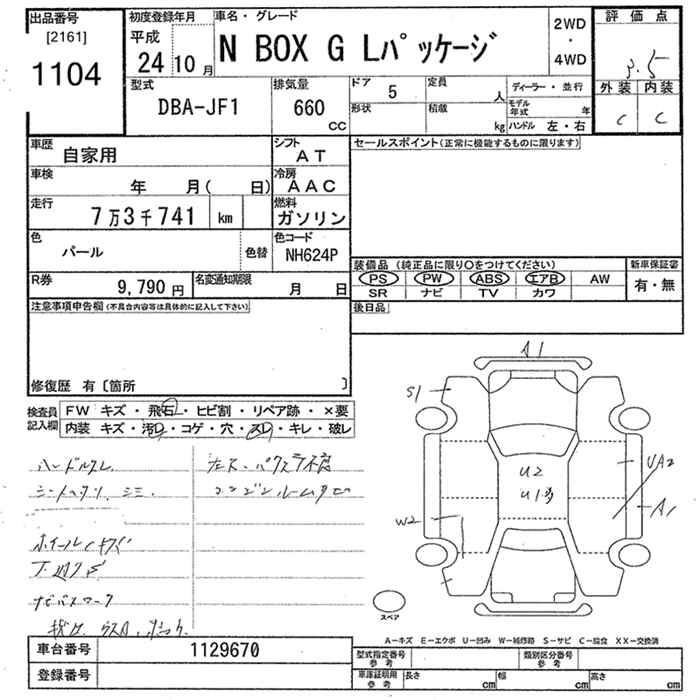 出品番号
[2161]
1104
初度登録年月
平成
24 10月
車名・グレード
N BOX G Lパッケージ
2WD
・
4WD
評価点
3.5
外装 内装
C C
型式
DBA-JF1
排気量
660
CC
ドア
5
定員
人
形状
積載
kg
ディーラー・並行
モデル年式 年
ハンドル 左・右
車歴
自家用
シフト
AT
車検
年 月( 日)
冷房
AAC
走行
7万3千741 km
燃料
ガソリン
色
パール
色替
色コード
NH624P
R券
9,790円
名変通知期限
月 日
セールスポイント(正常に機能するものに限ります)
装備品(純正品に限り○をつけてください)
PS PW ABS エアB AW
SR ナビ TV カワ
新車保証書
有・無
後日品
注意事項申告欄(不具合内容等は具体的に記入して下さい)
修復歴 有〔箇所 〕
検査員記入欄
FW キズ・飛石・ヒビ割・リペア跡・×要
内装 キズ・汚レ・コゲ・穴・スレ・キレ・破レ
ハンドルスレ
シートヘタリ、シミ
ホイールキズ
エンジンルームサビ
A1
S1
U2
U1多
UA2
A1
W2
スペア
A-キズ E-エクボ U-凹み W-補修跡 S-サビ C-腐食 XX-交換済
車台番号
1129670
登録番号
型式指定番号
参考
類別区分番号
参考
車庫証明用
参考
長さ cm
幅 cm
高さ cm